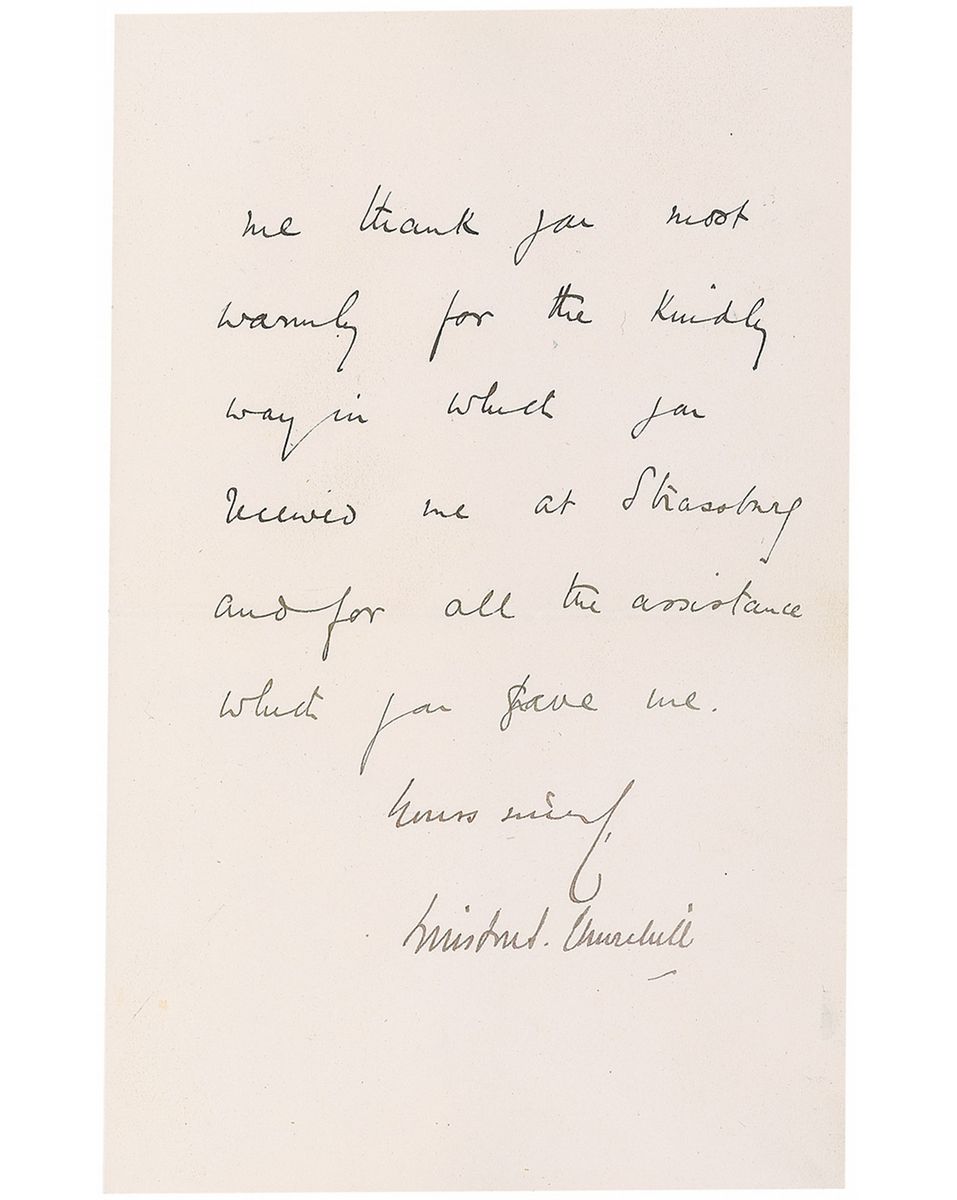 me thank you most
warmly for the kindly
way in which you
received me at Strassburg
and for all the assistance
which you gave me.
Yours sincerely
Winston S. Churchill